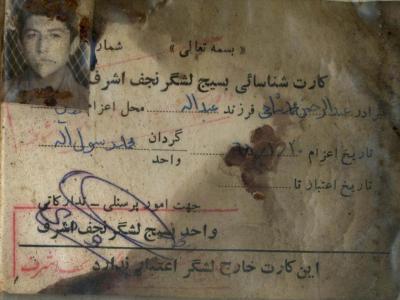 « بسمه تعالی » شما
کارت شناسائی بسیج لشگر نجف اشرف
برادر عبدالرحمن فرزند عبداله محل اعزام
تاریخ اعزام گردان محمد رسول اله
واحد
تاریخ اعتبار تا
جهت امور پرسنلی - تدارکاتی
واحد بسیج لشگر نجف اشرف
این کارت خارج لشگر اعتبار ندارد